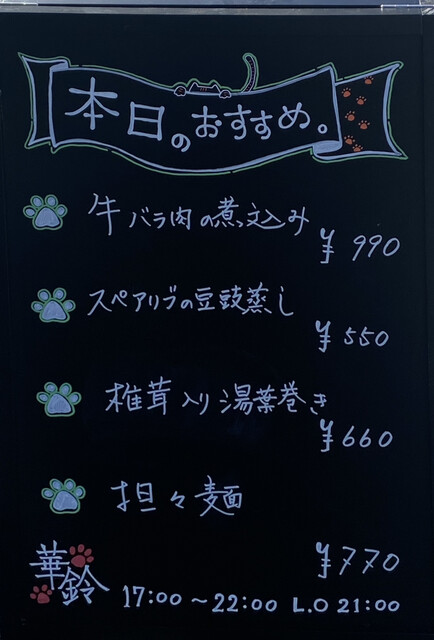 本日のおすすめ。
牛バラ肉の煮込み
¥990
スペアリブの豆鼓蒸し
¥550
椎茸入り湯葉巻き
¥660
担々麺
¥770
華鈴
17:00～22:00 L.O 21:00